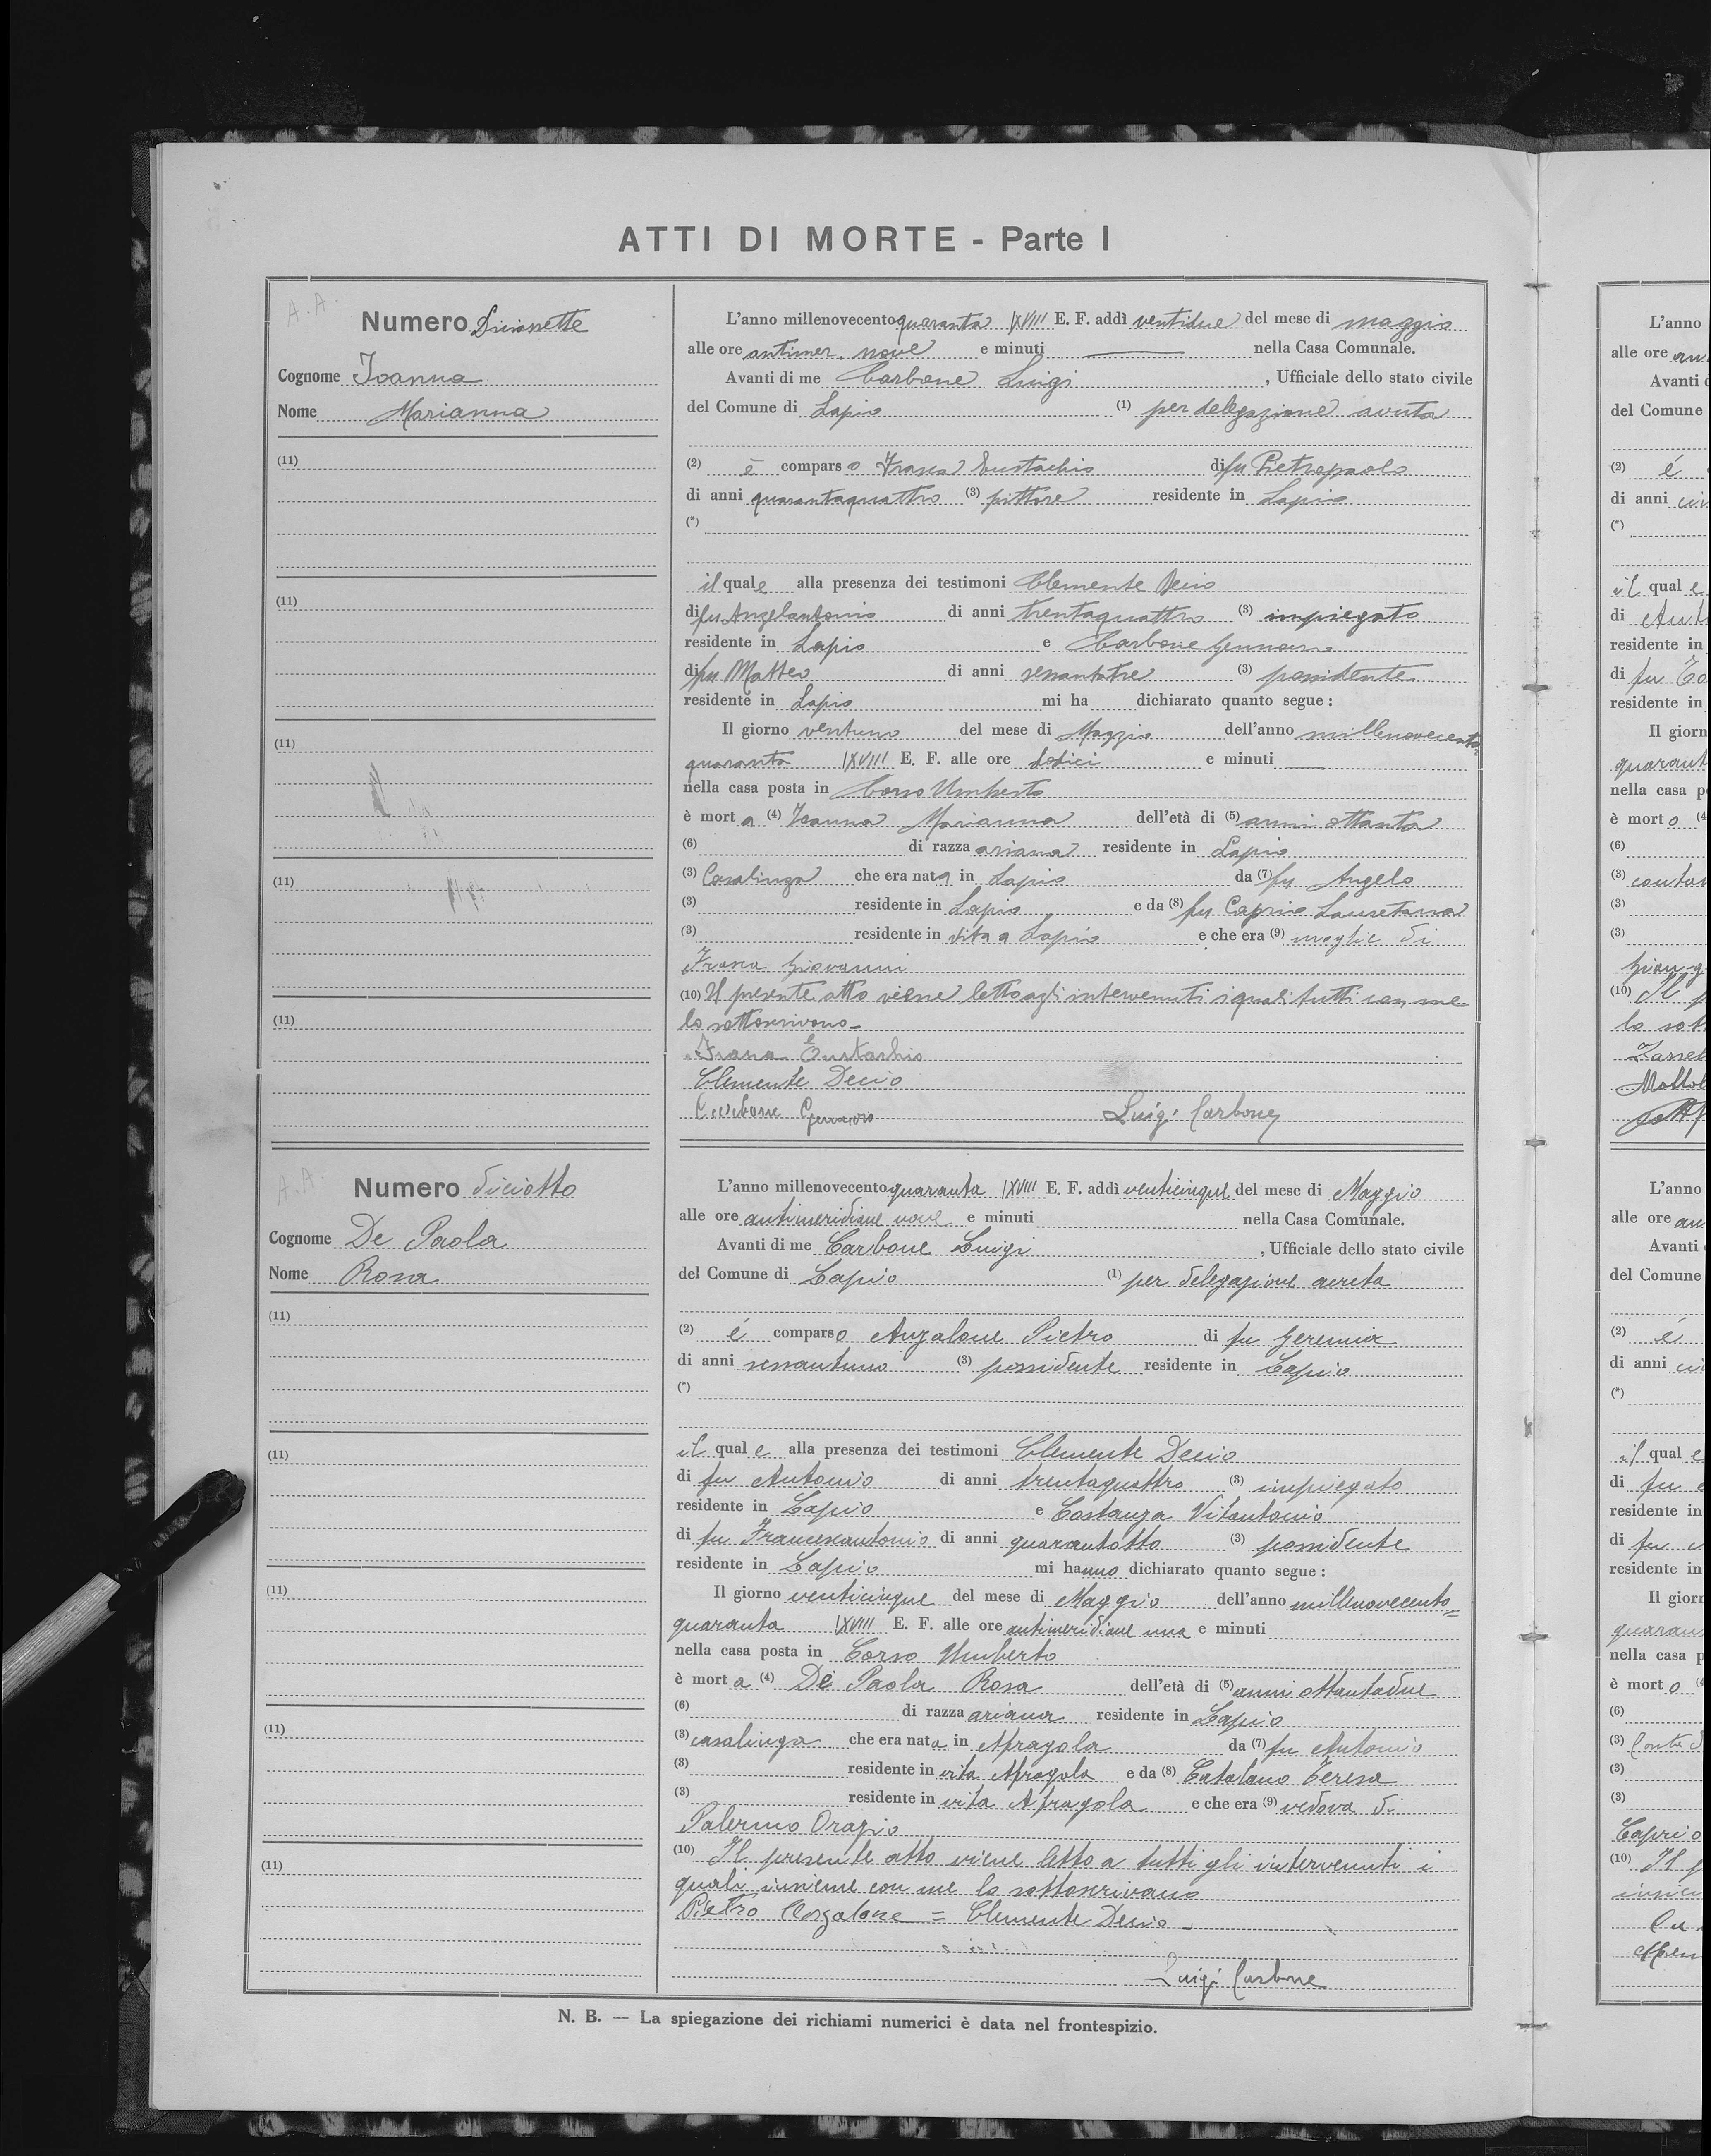 ATTI DI MORTE - Parte I
A. A.
Numero Diciassette
Cognome Ioanna
Nome Marianna
(11)
(11)
(11)
(11)
(11)
L'anno millenovecento quaranta XVIII E. F. addì ventidue del mese di maggio
alle ore antimer. nove e minuti nella Casa Comunale.
Avanti di me Carbone Luigi, Ufficiale dello stato civile
del Comune di Lapio (1) per delegazione avuta
(2) è comparso Frasca Eustachio di fu Pietropaolo
di anni quarantaquattro (3) pittore residente in Lapio
(*)
il quale alla presenza dei testimoni Clemente Decio
di fu Angelantonio di anni trentaquattro (3) impiegato
residente in Lapio e Carbone Gennaro
di fu Matteo di anni sessantatre (3) possidente
residente in Lapio mi ha dichiarato quanto segue:
Il giorno ventuno del mese di Maggio dell'anno millenovecento
quaranta XVIII E. F. alle ore dodici e minuti
nella casa posta in Corso Umberto
è morta (4) Ioanna Marianna dell'età di (5) anni ottanta
(6) di razza ariana residente in Lapio
(3) Casalinga che era nata in Lapio da (7) fu Angelo
(3) residente in Lapio e da (8) fu Caprio Lauretana
(3) residente in vita a Lapio e che era (9) moglie di
Frasca Giovanni
(10) Il presente atto viene letto agli intervenuti i quali tutti con me
lo sottoscrivono -
Frasca Eustachio
Clemente Decio
Carbone Gennaro Luigi Carbone
A. A.
Numero diciotto
Cognome De Paola
Nome Rosa
(11)
(11)
(11)
(11)
(11)
L'anno millenovecento quaranta XVIII E. F. addì venticinque del mese di Maggio
alle ore antimeridiane nove e minuti nella Casa Comunale.
Avanti di me Carbone Luigi, Ufficiale dello stato civile
del Comune di Lapio (1) per delegazione avuta
(2) é comparso Anzalone Pietro di fu Geremia
di anni sessantuno (3) possidente residente in Lapio
(*)
il quale alla presenza dei testimoni Clemente Decio
di fu Antonio di anni trentaquattro (3) impiegato
residente in Lapio e Costanza Vitantonio
di fu Francescantonio di anni quarantotto (3) possidente
residente in Lapio mi hanno dichiarato quanto segue:
Il giorno venticinque del mese di Maggio dell'anno millenovecento=
quaranta XVIII E. F. alle ore antimeridiane una e minuti
nella casa posta in Corso Umberto
è morta (4) De Paola Rosa dell'età di (5) anni ottantadue
(6) di razza ariana residente in Lapio
(3) casalinga che era nata in Afragola da (7) fu Antonio
(3) residente in vita Afragola e da (8) Catalano Teresa
(3) residente in vita Afragola e che era (9) vedova di
Palermo Orazio
(10) Il presente atto viene letto a tutti gli intervenuti i
quali insieme con me lo sottoscrivono
Pietro Anzalone = Clemente Decio -
Luigi Carbone
N. B. — La spiegazione dei richiami numerici è data nel frontespizio.
L'anno
alle ore
Avanti
del Comune
(2) é
di anni
(*)
il qual e
di
residente in
di fu
residente in
Il giorn
quarant
nella casa p
è morto (4
(6)
(3)
(3)
(3)
(10) Il
lo sott
L'anno
alle ore
Avanti
del Comune
(2) é
di anni
(*)
il qual e
di fu
residente in
di fu
residente in
Il giorn
nella casa p
è morto (4
(6)
(3)
(3)
(3)
Caprio
(10) Il